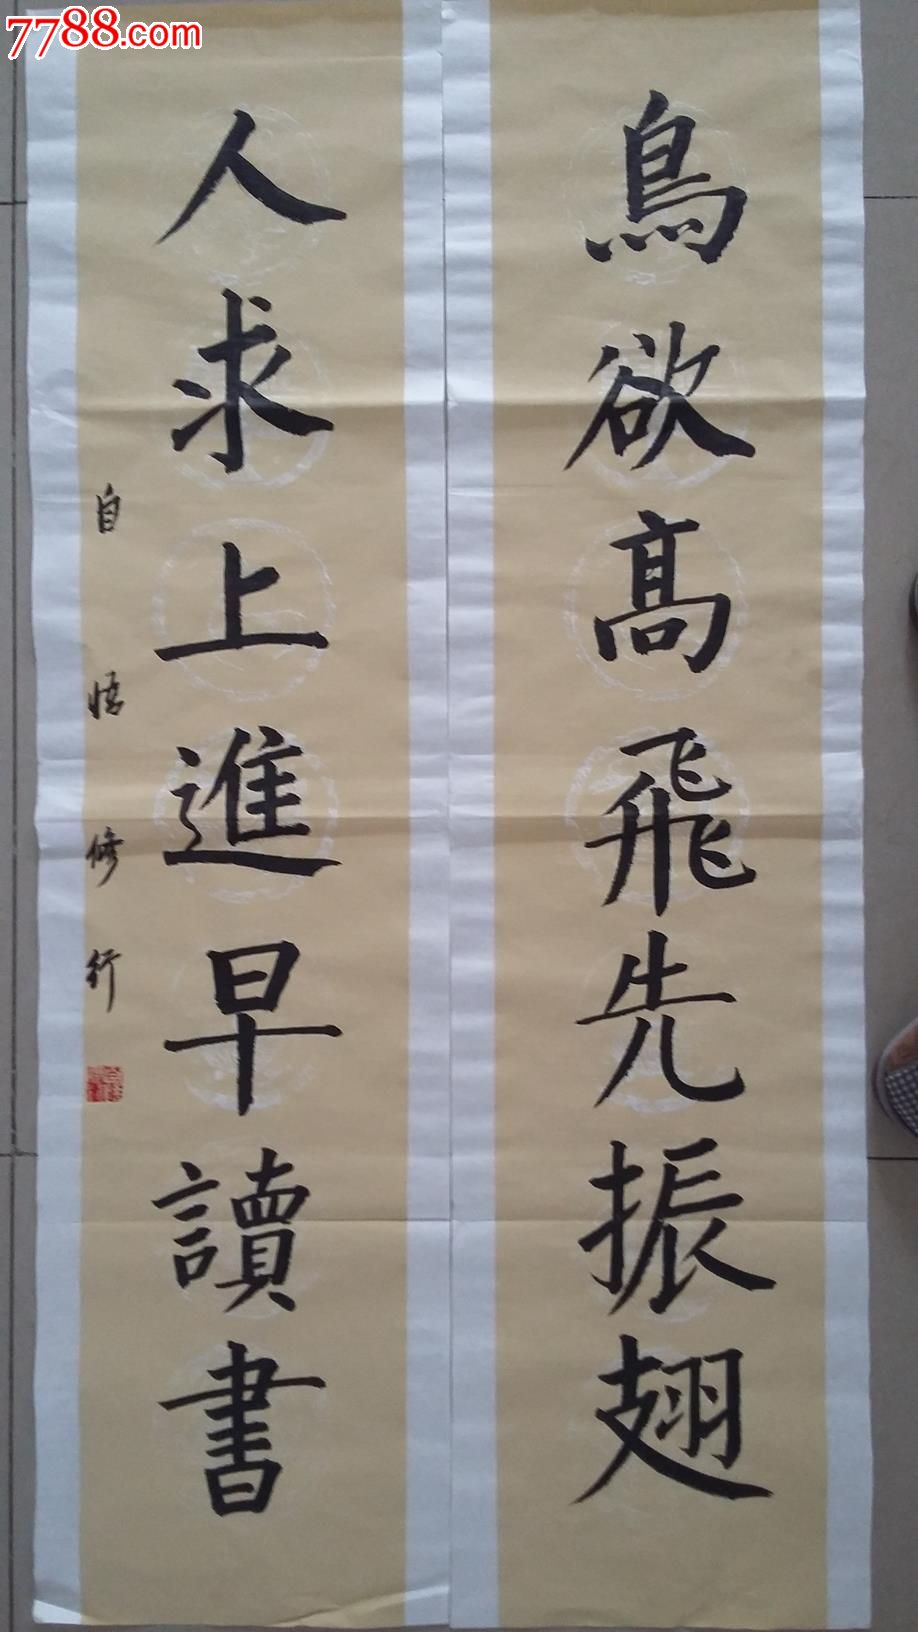 7788.com
鳥欲髙飛先振翅
人求上進早讀書
自悟修行